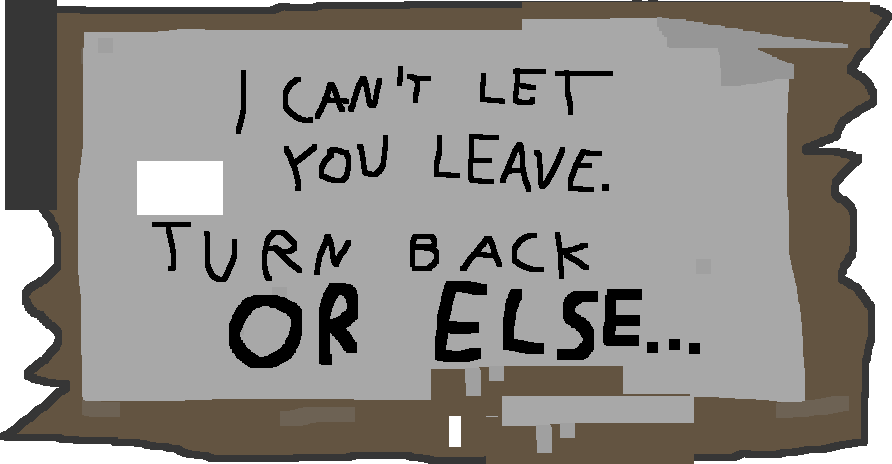 I CAN'T LET
YOU LEAVE.
TURN BACK
OR ELSE...